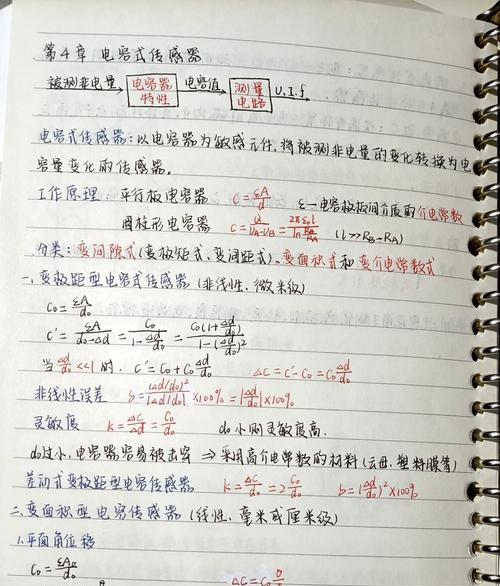 第4章 电容式传感器
被测非电量 → 电容器特性 电容值 → 测量电路 U、I、f
电容式传感器：以电容器为敏感元件，将被测非电量的变化转换为电
容量变化的传感器。
工作原理：平行板电容器 C=εA/d ε—电容极板间介质的介电常数
圆柱形电容器 C=Q/(UA-UB)=2πε0l/ln(RB/RA) (l>>RB-RA)
分类：变间隙式(变极矩式、变间距式)、变面积式和变介电常数式
一、变极距型电容式传感器(非线性、微米级)
C0=εA/d0
C'=εA/(d0-Δd)=C0/(1-Δd/d0)=C0(1+Δd/d0)/(1-(Δd/d0)²)
当Δd/d0<<1时，C'=C0+C0Δd/d0 ΔC=C'-C0=C0Δd/d0
非线性误差 δ=(Δd/d0)²/|Δd/d0|×100%=|Δd/d0|×100%
灵敏度 k=ΔC/Δd=C0/d0 d0小则灵敏度高.
d0过小，电容器容易被击穿 ⇒ 采用高介电常数的材料(云母、塑料膜等)
差动式变极距型电容传感器 k=ΔC/Δd=2C0/d0 δ=|Δd/d0|²×100%
二、变面积型电容传感器(线性、毫米或厘米级)
1.平面角位移
C0=εA0/d0